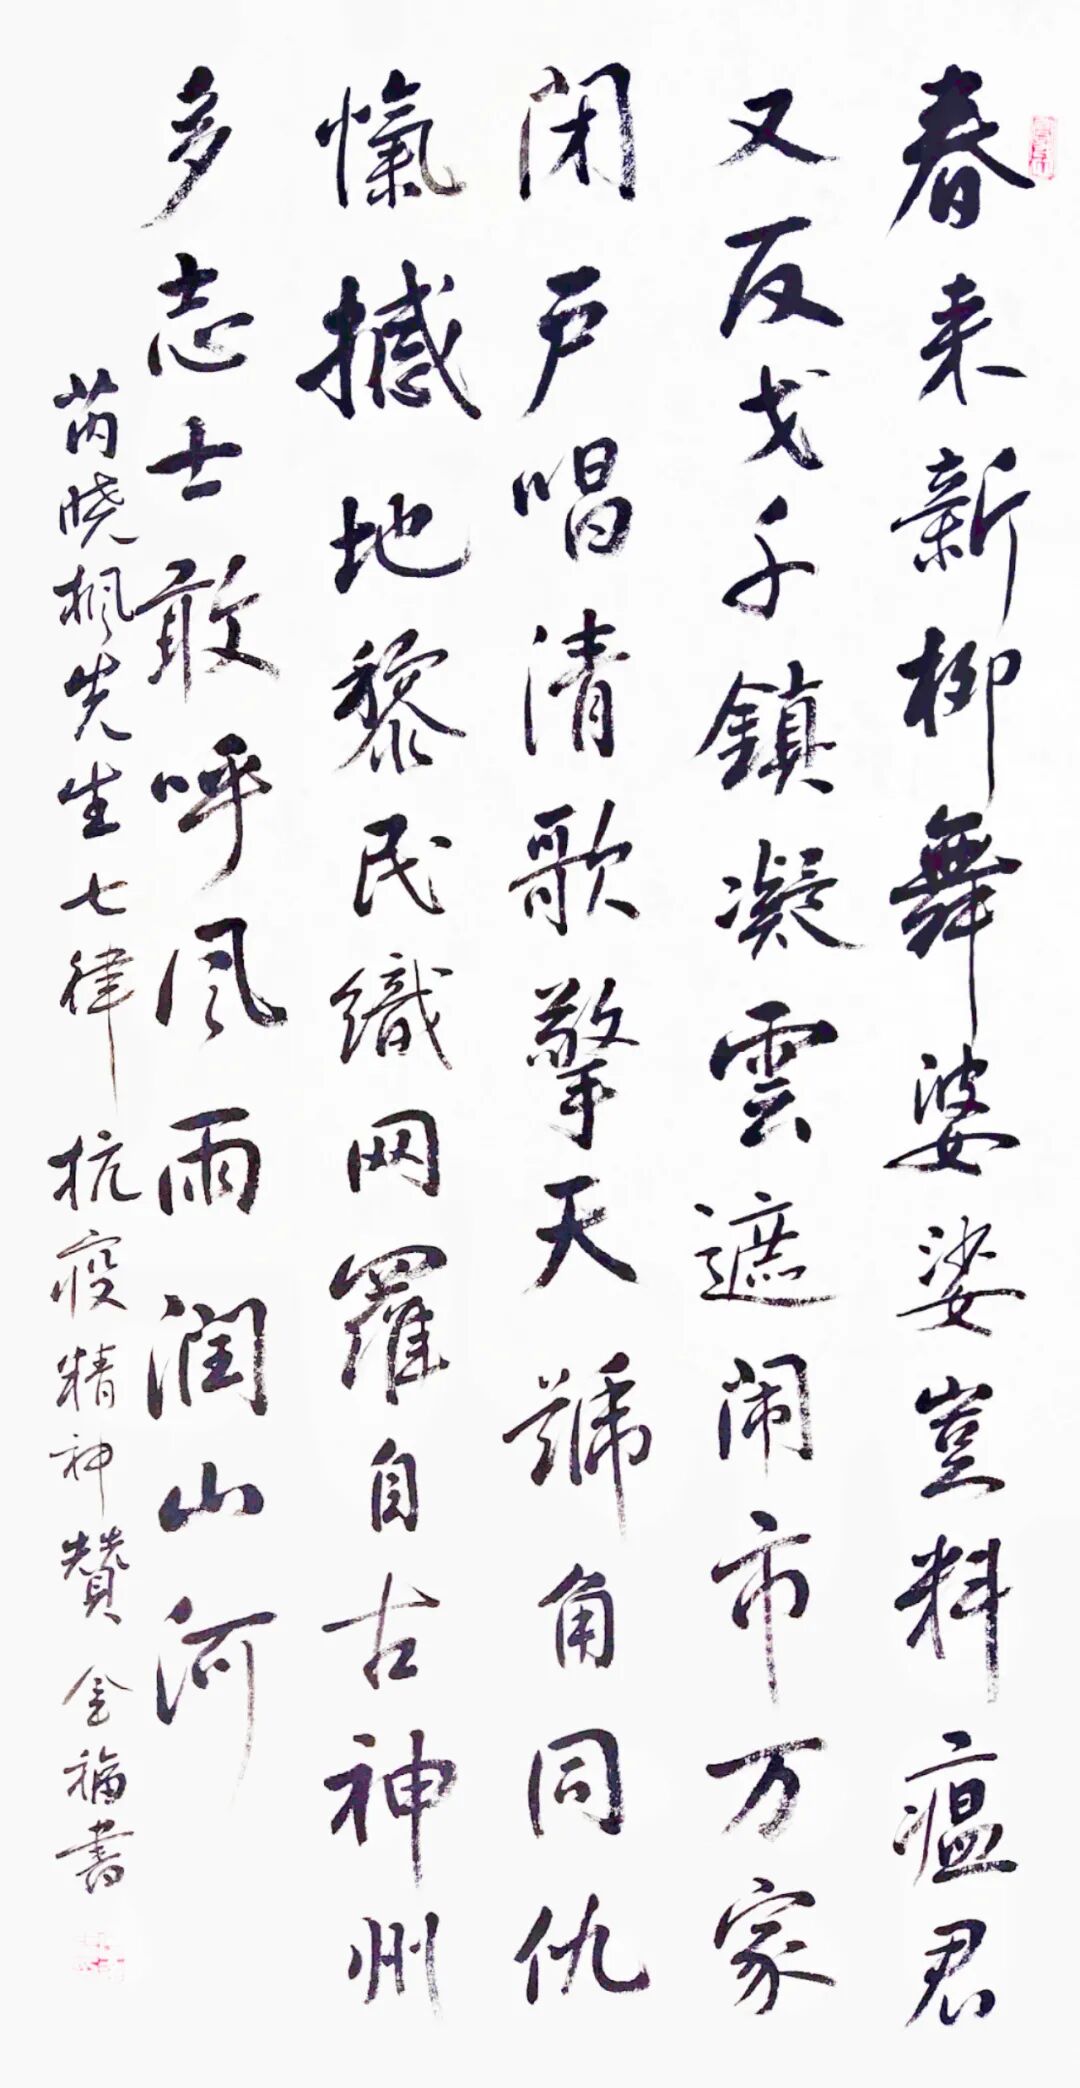 春来新柳舞婆娑岂料瘟君
又反戈千鎮凝雲遮闹市万家
闭户唱清歌擎天號角同仇
愾撼地黎民織网羅自古神州
多志士敢呼风雨润山河
芮晓枫先生七律 抗疫精神赞 金福書